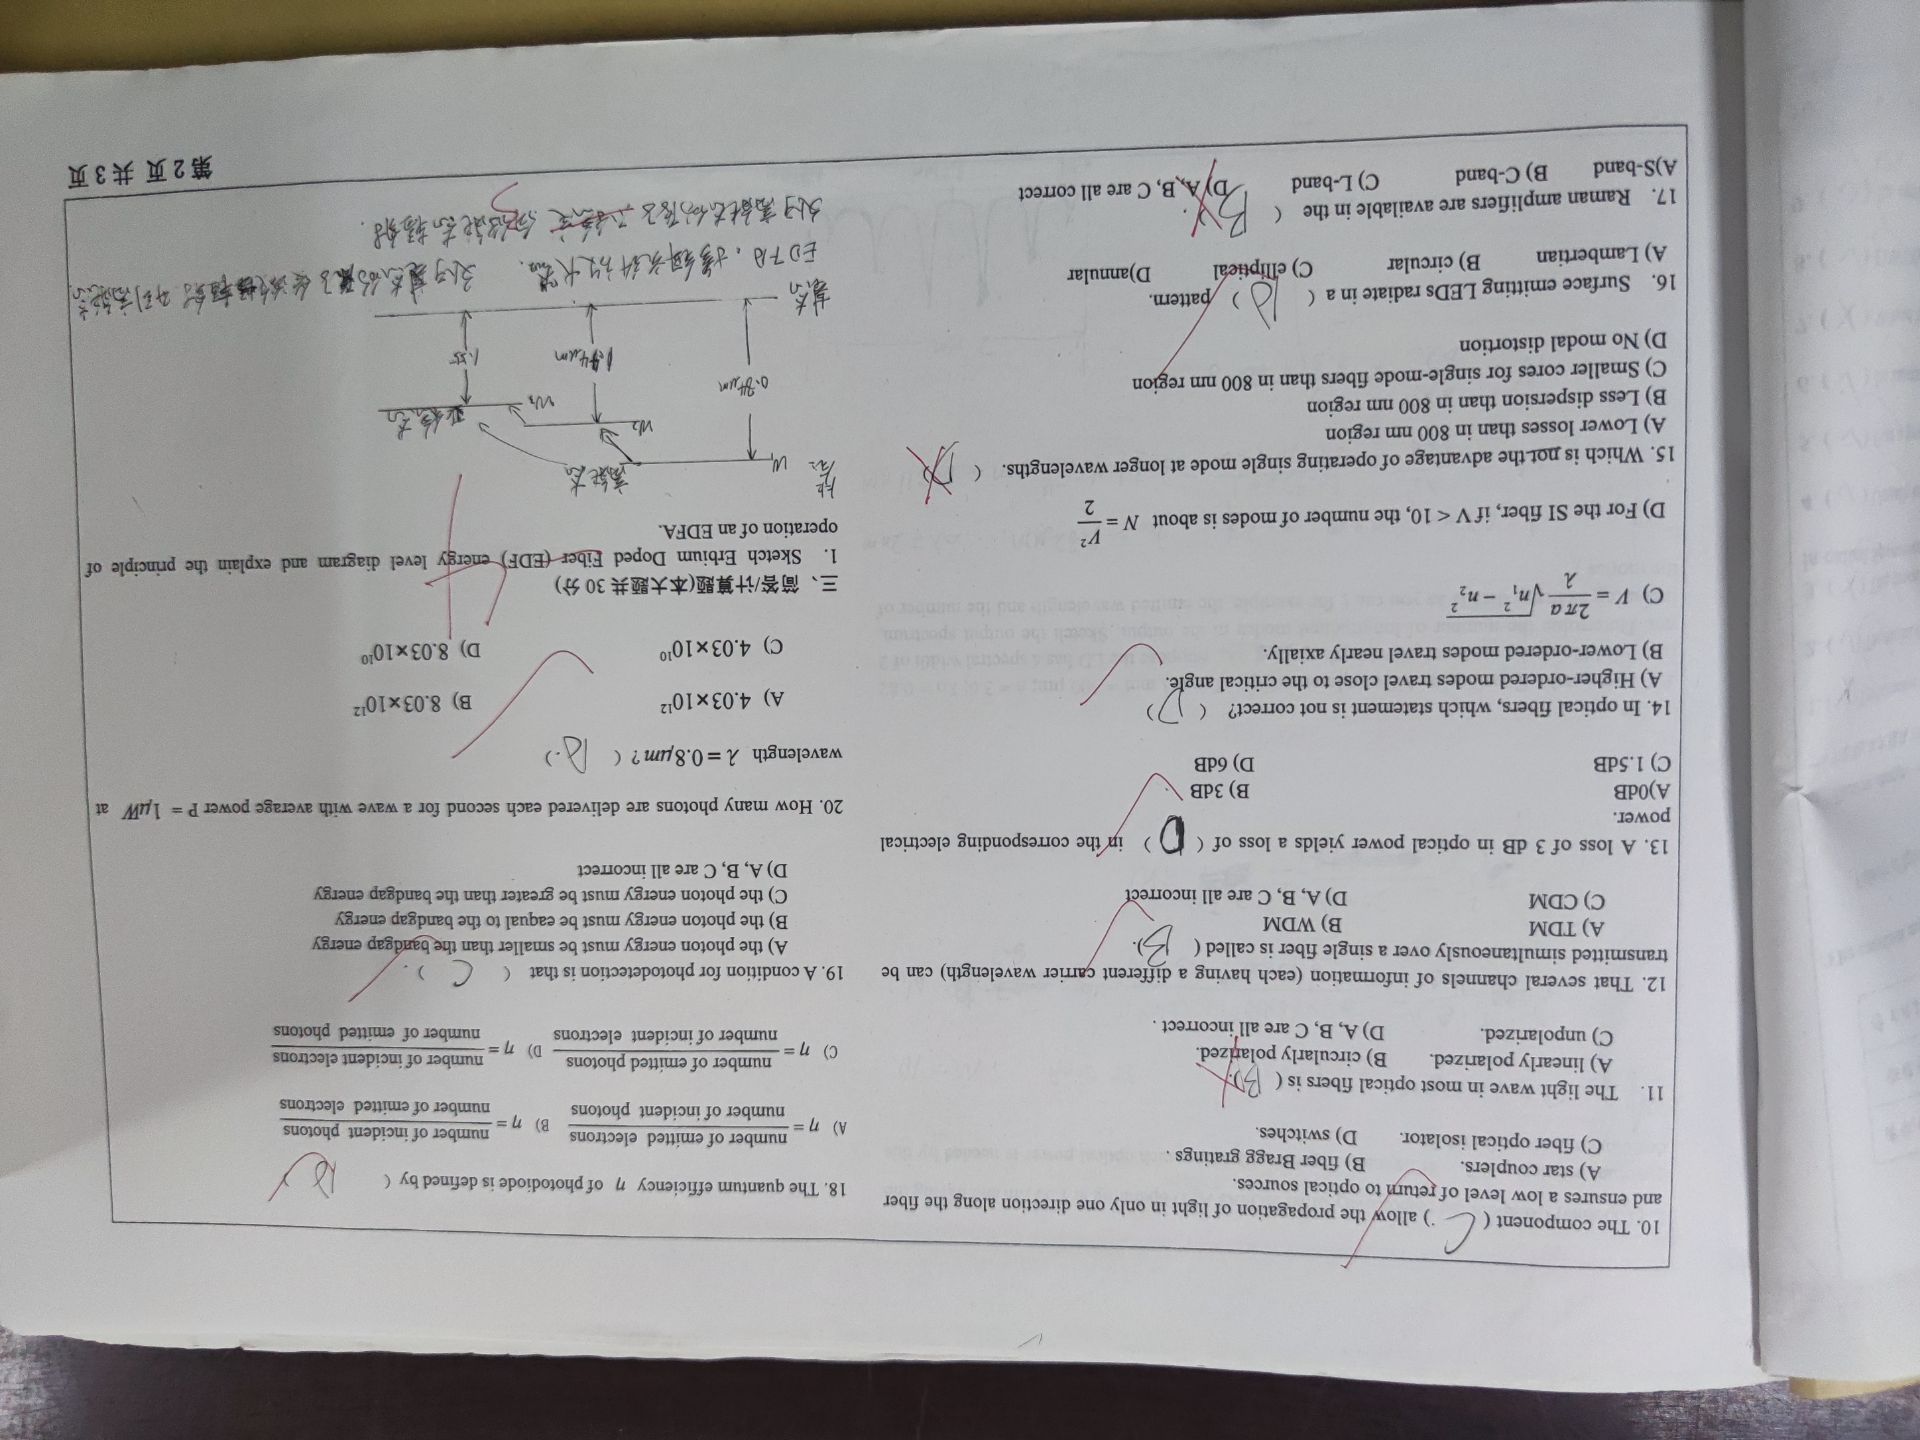 10. The component ( C ) allow the propagation of light in only one direction along the fiber
and ensures a low level of return to optical sources.
A) star couplers. B) fiber Bragg gratings .
C) fiber optical isolator. D) switches.
11. The light wave in most optical fibers is ( B ).
A) linearly polarized. B) circularly polarized.
C) unpolarized. D) A, B, C are all incorrect .
12. That several channels of information (each having a different carrier wavelength) can be
transmitted simultaneously over a single fiber is called ( B ).
A) TDM B) WDM
C) CDM D) A, B, C are all incorrect
13. A loss of 3 dB in optical power yields a loss of ( D ) in the corresponding electrical
power.
A)0dB B) 3dB
C) 1.5dB D) 6dB
14. In optical fibers, which statement is not correct? ( D )
A) Higher-ordered modes travel close to the critical angle.
B) Lower-ordered modes travel nearly axially.
C) V = 2πa/λ √(n₁² − n₂²)
D) For the SI fiber, if V < 10, the number of modes is about N = V²/2
15. Which is not the advantage of operating single mode at longer wavelengths. ( D )
A) Lower losses than in 800 nm region
B) Less dispersion than in 800 nm region
C) Smaller cores for single-mode fibers than in 800 nm region
D) No modal distortion
16. Surface emitting LEDs radiate in a ( A ) pattern.
A) Lambertian B) circular C) elliptical D)annular
17. Raman amplifiers are available in the ( B ).
A)S-band B) C-band C) L-band D) A, B, C are all correct
18. The quantum efficiency η of photodiode is defined by ( A )
A) η = number of emitted electrons / number of incident photons B) η = number of incident photons / number of emitted electrons
C) η = number of emitted photons / number of incident electrons D) η = number of incident electrons / number of emitted photons
19. A condition for photodetection is that ( C ).
A) the photon energy must be smaller than the bandgap energy
B) the photon energy must be eaqual to the bandgap energy
C) the photon energy must be greater than the bandgap energy
D) A, B, C are all incorrect
20. How many photons are delivered each second for a wave with average power P = 1μW at
wavelength λ = 0.8μm? ( A. )
A) 4.03×10¹² B) 8.03×10¹²
C) 4.03×10¹⁰ D) 8.03×10¹⁰
三、简答/计算题(本大题共 30 分)
4
1. Sketch Erbium Doped Fiber (EDF) energy level diagram and explain the principle of
operation of an EDFA.
能 W₁ 高能态
W₂ W₃ 亚稳态
0.84μm 1.55
基态
EDFA, 掺铒光纤放大器. 处于基态的原子 升到高能态
处于高能态的原子不稳定 向低能态辐射.
第 2 页 共 3 页